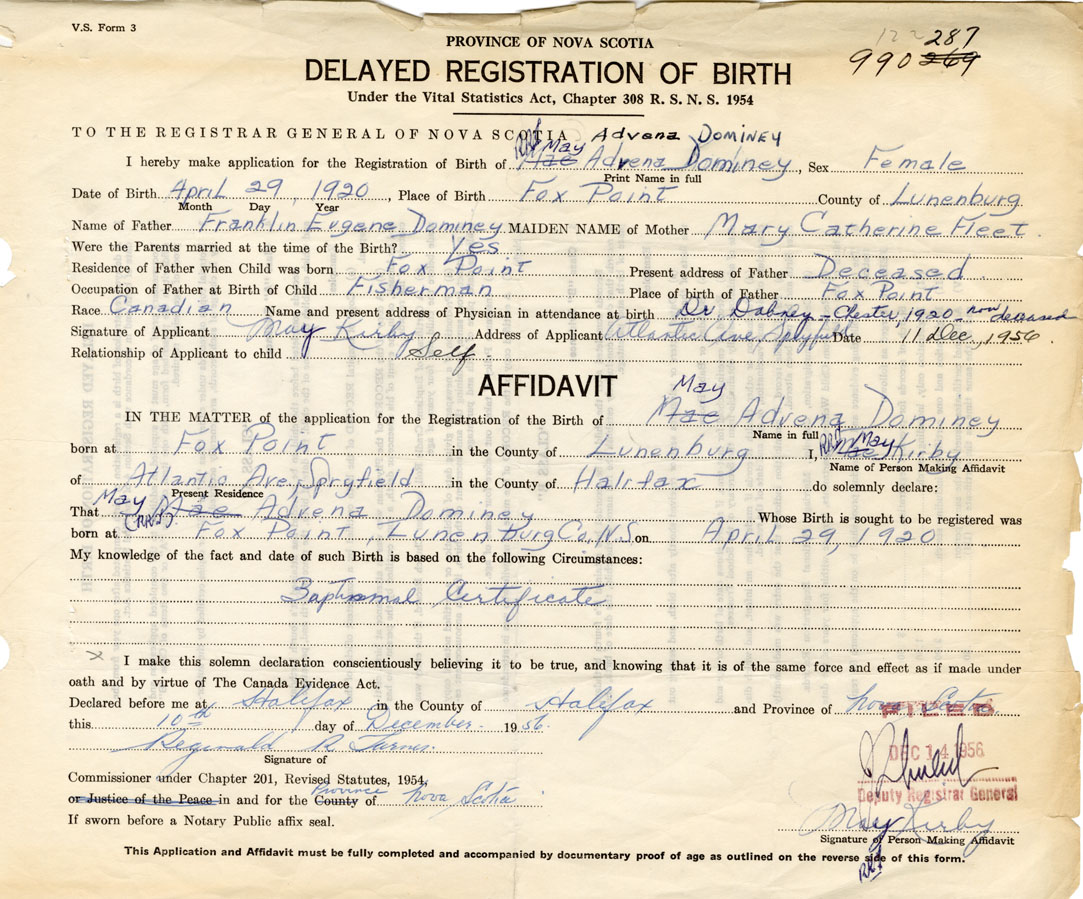 V.S. Form 3
PROVINCE OF NOVA SCOTIA
287
990 269
DELAYED REGISTRATION OF BIRTH
Under the Vital Statistics Act, Chapter 308 R. S. N. S. 1954
TO THE REGISTRAR GENERAL OF NOVA SCOTIA Advena DOMINEY
I hereby make application for the Registration of Birth of Mae May Advena Dominey, Sex Female
Print Name in full
Date of Birth April 29, 1920, Place of Birth Fox Point County of Lunenburg
Month Day Year
Name of Father Franklin Eugene Dominey MAIDEN NAME of Mother Mary Catherine Fleet.
Were the Parents married at the time of the Birth? Yes
Residence of Father when Child was born Fox Point Present address of Father Deceased
Occupation of Father at Birth of Child Fisherman Place of birth of Father Fox Point
Race Canadian Name and present address of Physician in attendance at birth Dr. Dabney - Chester, 1920 - now deceased
Signature of Applicant May Kirby Address of Applicant Atlantic Ave Spryfield Date 11 Dec, 1956.
Relationship of Applicant to child Self.
AFFIDAVIT
May
IN THE MATTER of the application for the Registration of the Birth of Mae Advena Dominey
Name in full
born at Fox Point in the County of Lunenburg I, RRJ Mae May Kirby
Name of Person Making Affidavit
of Atlantic Ave, Spryfield in the County of Halifax do solemnly declare:
Present Residence
May
That Mae Advena Dominey Whose Birth is sought to be registered was
(RRJ)
born at Fox Point, Lunenburg Co., N.S. on April 29, 1920
My knowledge of the fact and date of such Birth is based on the following Circumstances:
Baptismal Certificate
x I make this solemn declaration conscientiously believing it to be true, and knowing that it is of the same force and effect as if made under
oath and by virtue of The Canada Evidence Act.
Declared before me at Halifax in the County of Halifax and Province of Nova Scotia
FILED
this 10th day of December 1956.
DEC 14 1956
Reginald R
Signature of
Commissioner under Chapter 201, Revised Statutes, 1954,
Deputy Registrar General
or Justice of the Peace in and for the County Province of Nova Scotia
May Kirby
If sworn before a Notary Public affix seal.
Signature of Person Making Affidavit
This Application and Affidavit must be fully completed and accompanied by documentary proof of age as outlined on the reverse side of this form.
RRJ